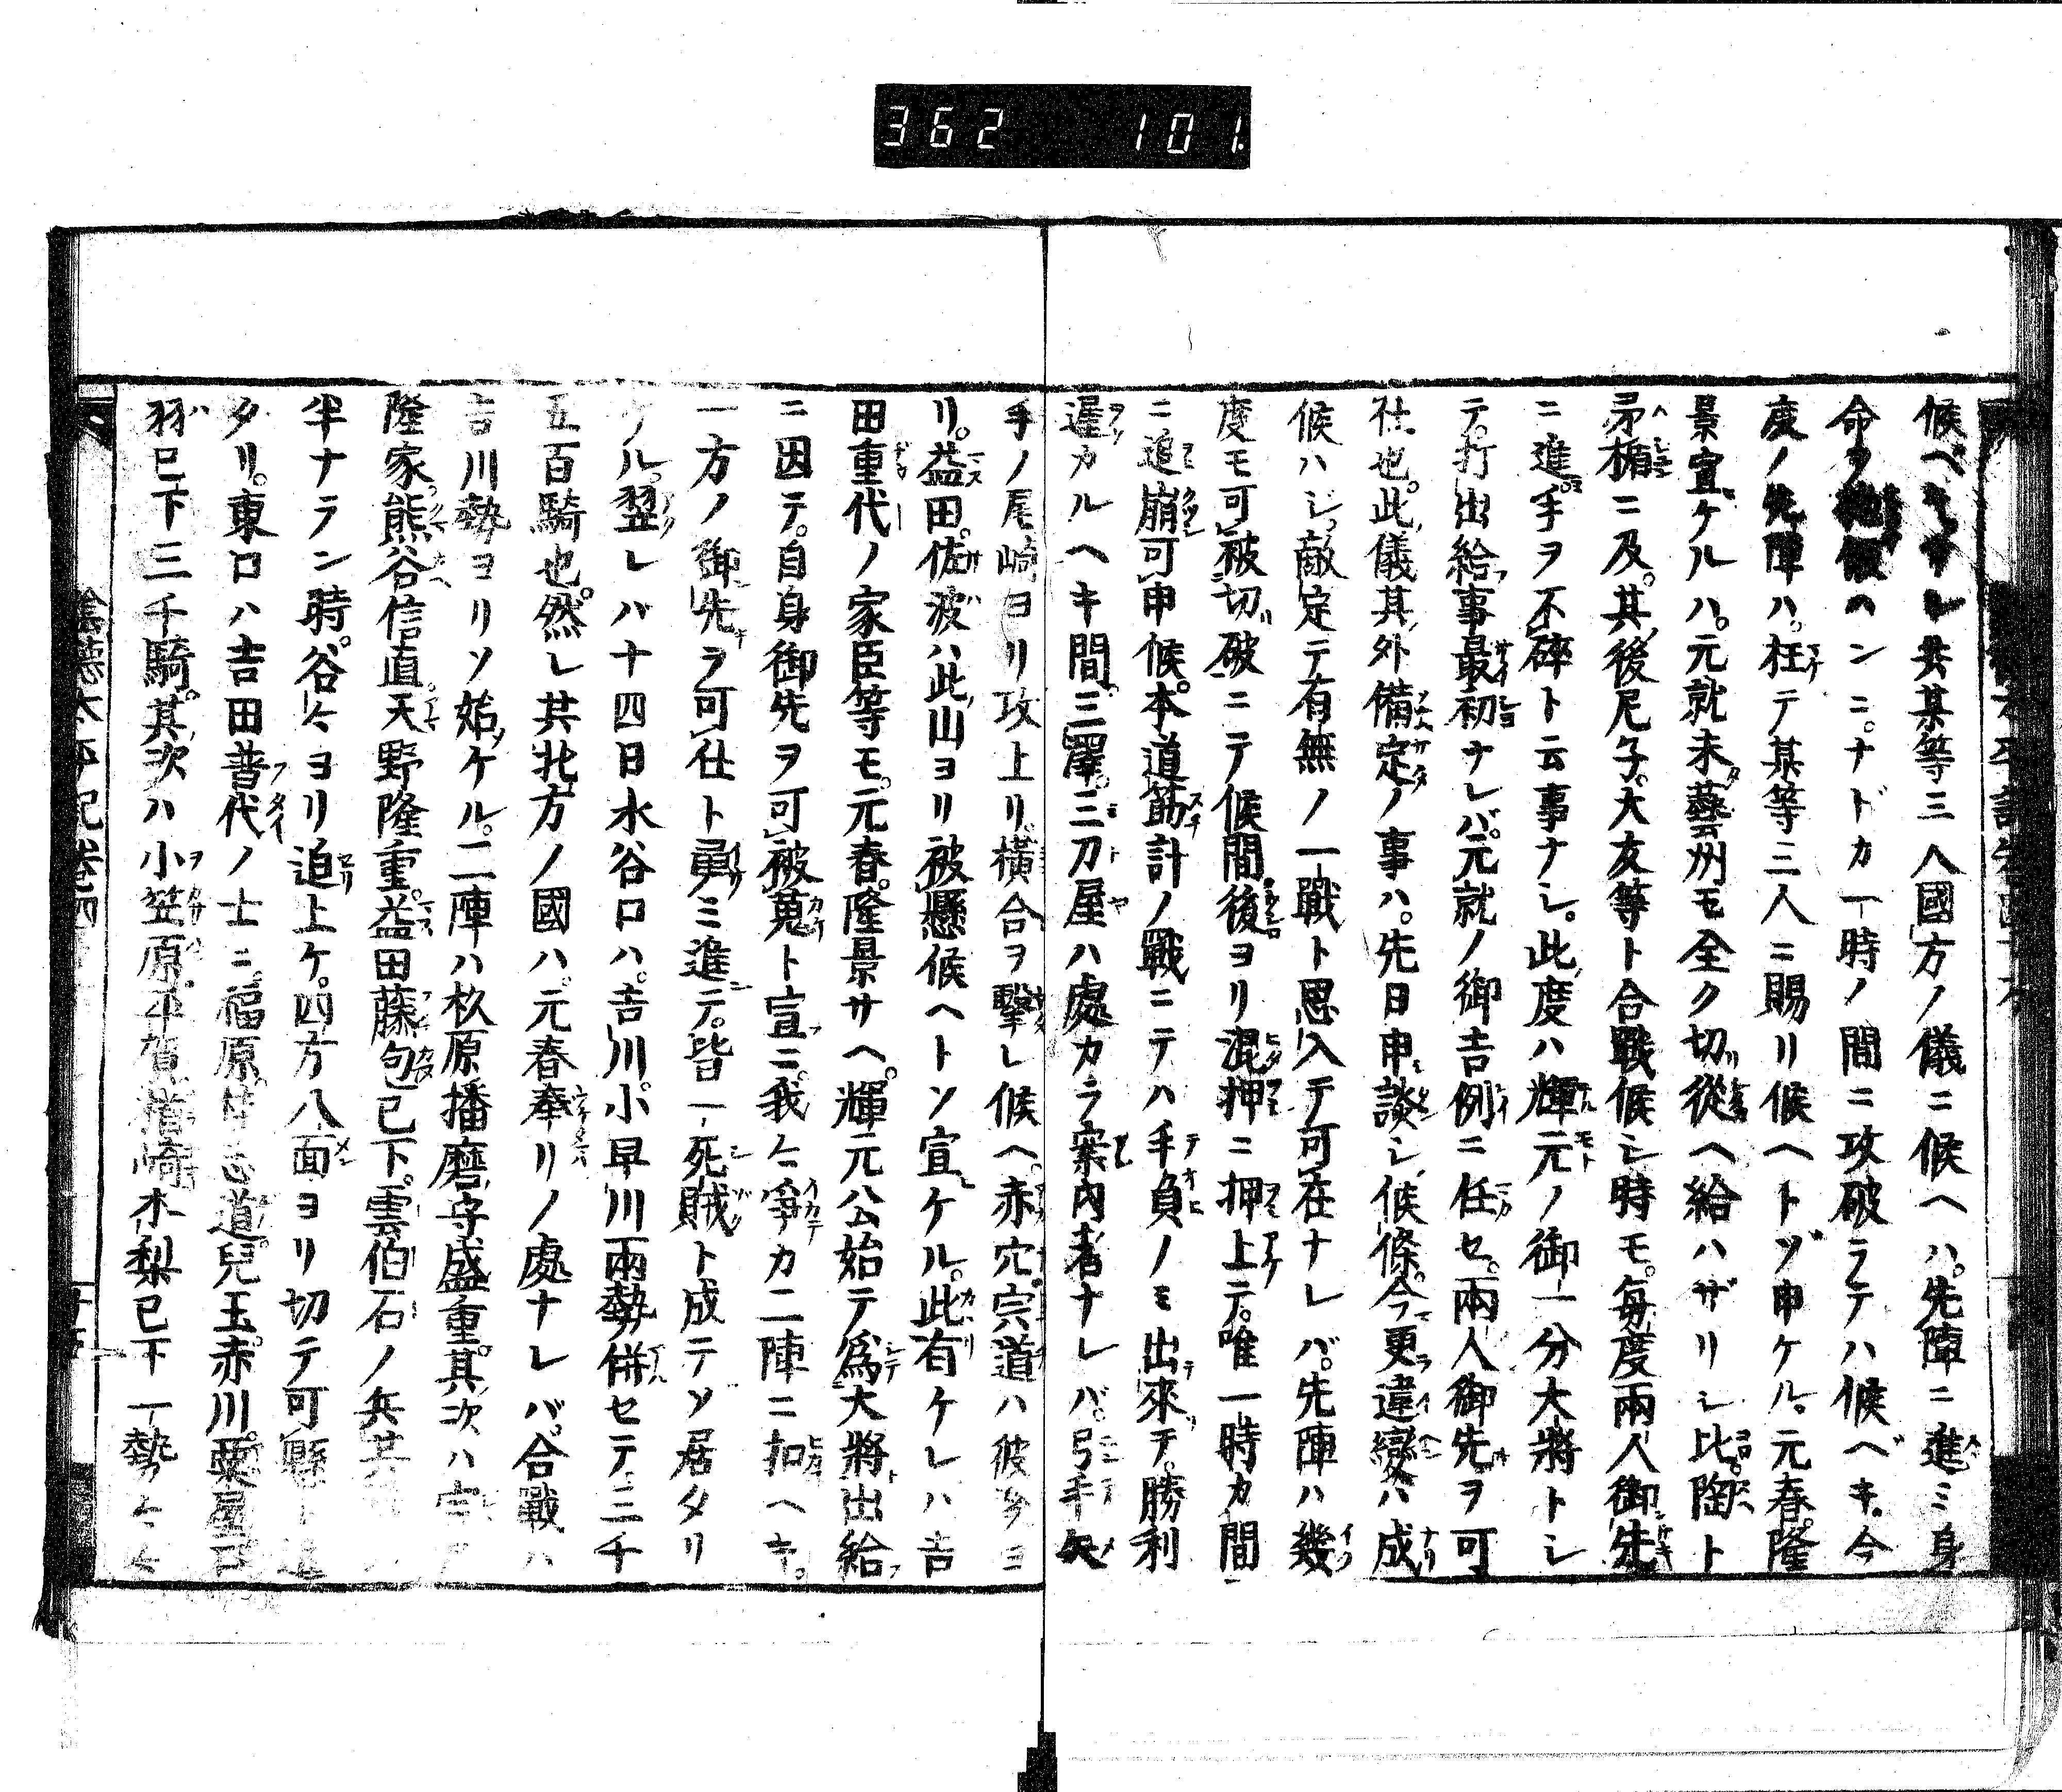 362 101
候ベキサレ共某等三人國方ノ儀ニ候ヘハ先陣ニ進ミ身
命ヲ候ハンニ。ナドカ一時ノ間ニ攻破ラテハ候ベキ。今
度ノ先陣ハ。枉テ某等三人ニ賜リ候ヘトゾ申ケル。元春。隆
景宣ケルハ。元就未藝州モ全ク切從ヘ給ハザリシ比。陶ト
矛楯ニ及。其後尼子。大友等ト合戰候シ時モ。毎度兩人御先
ニ進。手ヲ不碎ト云事ナシ。此度ハ輝元ノ御一分大將トシ
テ。打出給事最初ナレバ。元就ノ御吉例ニ任セ。兩人御先ヲ可
仕也。此儀其外備定ノ事ハ。先日申談シ候條。今更違變ハ成
候ハシ。敵定テ有無ノ一戰ト思入テ可在ナレバ。先陣ハ幾
度モ可被切破ニテ候間。後ヨリ混押ニ押上テ。唯一時カ間
ニ追崩可申候。本道筋計ノ戰ニテハ手負ノミ出來テ。勝利
遅カルヘキ間。三澤。三刀屋ハ處カラ案内者ナレバ。弓手矢
手ノ尾崎ヨリ攻上リ。横合ヲ撃レ候ヘ。赤穴。宍道ハ彼多ヨ
リ。益田。佐波ハ此山ヨリ被懸候ヘトソ宣ケル。此有ケレハ吉
田重代ノ家臣等モ。元春。隆景サヘ。輝元公始テ爲大將出給
ニ因テ。自身御先ヲ可被蒐ト宣ニ。我々爭カ二陣ニ扣ヘキ。
一方ノ御先ヲ可仕ト勇ミ進テ。皆一死賊ト成テソ居タリ
ケル。翌レバ十四日水谷口ハ。吉川。小早川兩勢併セテ三千
五百騎也。然レ共北方ノ國ハ。元春奉リノ處ナレバ。合戰ハ
吉川勢ヨリソ始ケル。二陣ハ杦原播磨守盛重。其次ハ宍
隆家。熊谷信直。天野隆重。益田藤包已下。雲伯石ノ兵共
半ナラン時。谷々ヨリ迫上ケ。四方八面ヨリ切テ可懸ト
タリ。東口ハ吉田普代ノ士ニ。福原。道。兒玉。赤川。粟屋口
羽已下三千騎。其次ハ小笠原。平賀。楢崎。木梨已下一勢々々
陰徳太平記巻四